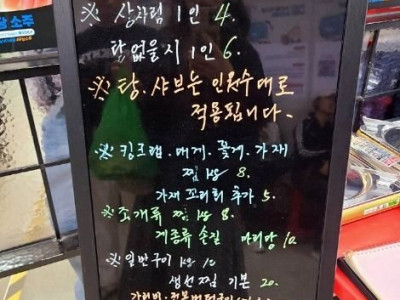 소주
※ 상차림 1인 4.
탕 없을시 1인 6.
※ 탕. 샤브는 인원수대로
적용됩니다.
※ 킹크랩. 대게. 꽃게. 가재
찜 kg 8.
가재 꼬리회 추가 5.
※ 조개류 찜 kg 8.
게종류 손질 마리당 10.
※ 일반구이 kg 10
생선찜 기본 20.